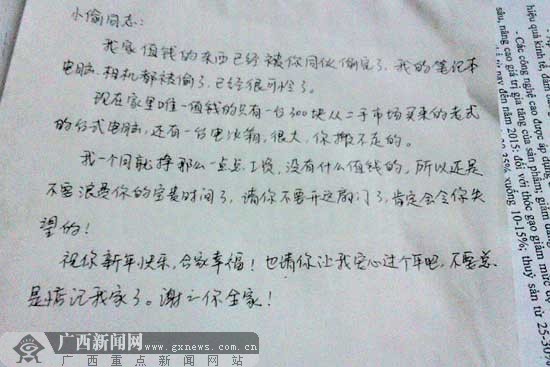 小偷同志：
我家值钱的东西已经被你同伙偷完了，我的笔记本
电脑、相机都被偷了，已经很可怜了。
现在家里唯一值钱的只有一台300块从二手市场买来的老式
的台式电脑，还有一台电冰箱，很大，你搬不走的。
我一个月就挣那么一点点工资，没有什么值钱的，所以还是
不要浪费你的宝贵时间了，请你不要开这扇门了，肯定会令你失
望的！
祝你新年快乐，合家幸福！也请你让我安心过个年吧，不要总
是惦记我家了。谢谢你全家！
广西新闻网
www.gxnews.com.cn
广西重点新闻网站
hiệu quả kinh tế, đảm
- Các công nghệ cao được áp dụng
sâu, nâng cao giá trị gia tăng của sản phẩm; giảm
nay đến năm 2015: đối với thóc gạo giảm mức
xuống 10-15%; thuỷ
sản từ 25-30%